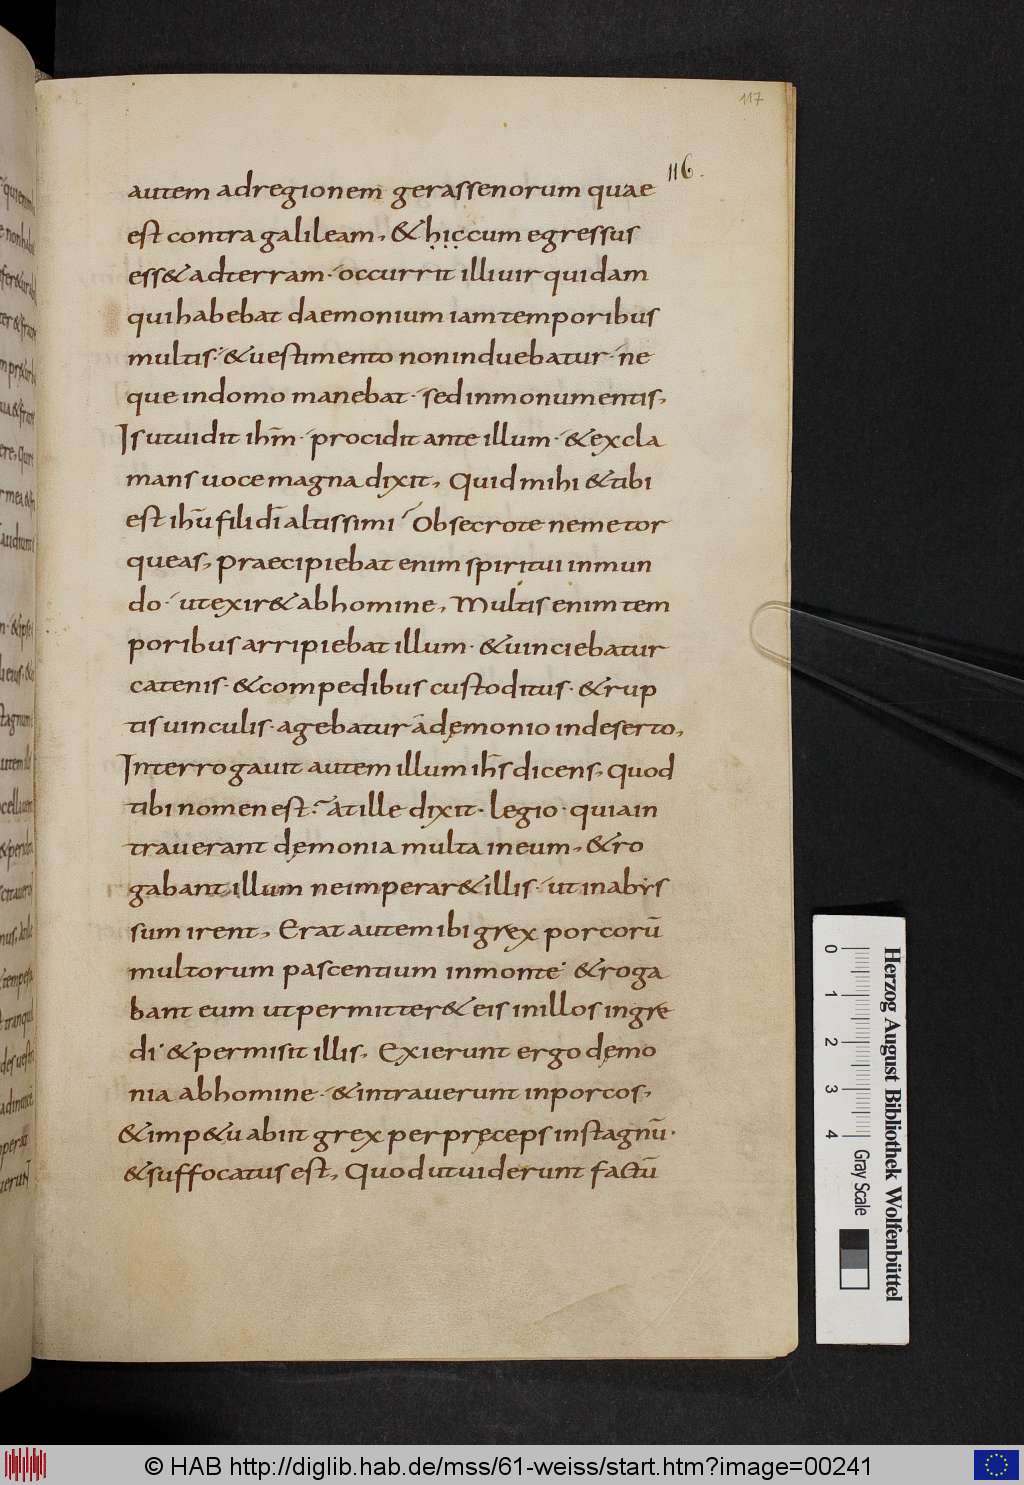 117
116.
autem adregionem gerassenorum quae
est contra galileam, & hic cum egressus
ess& adterram· occurrit illi uir quidam
qui habebat daemonium iam temporibus
multis· & uestimento non induebatur· ne
que in domo manebat· sed in monumentis,
Is ut uidit ihm̄· procidit ante illum· & excla
mans uoce magna dixit, Quid mihi & tibi
est ihū fili dī altissimi? Obsecro te ne me tor
queas, praecipiebat enim spiritui inmun
do· ut exir& abhomine, Multis enim tem
poribus arripiebat illum· & uinciebatur
catenis· & compedibus custoditus· & rup
tis uinculis· agebatur a dęmonio in deserto,
Interrogauit autem illum ihs̄ dicens, quod
tibi nomen est? at ille dixit· legio· quia in
trauerant dęmonia multa in eum, & ro
gabant illum ne imperar& illis· ut in abys
sum irent, Erat autem ibi grex porcorū
multorum pascentium in monte· & roga
bant eum ut permitter& eis in illos ingre
di· & permisit illis, Exierunt ergo dęmo
nia abhomine· & intrauerunt in porcos,
& imp&u abiit grex per pręceps in stagnū·
& suffocatus est, Quod ut uiderunt factū
Herzog August Bibliothek Wolfenbüttel
0 1 2 3 4 Gray Scale
© HAB http://diglib.hab.de/mss/61-weiss/start.htm?image=00241